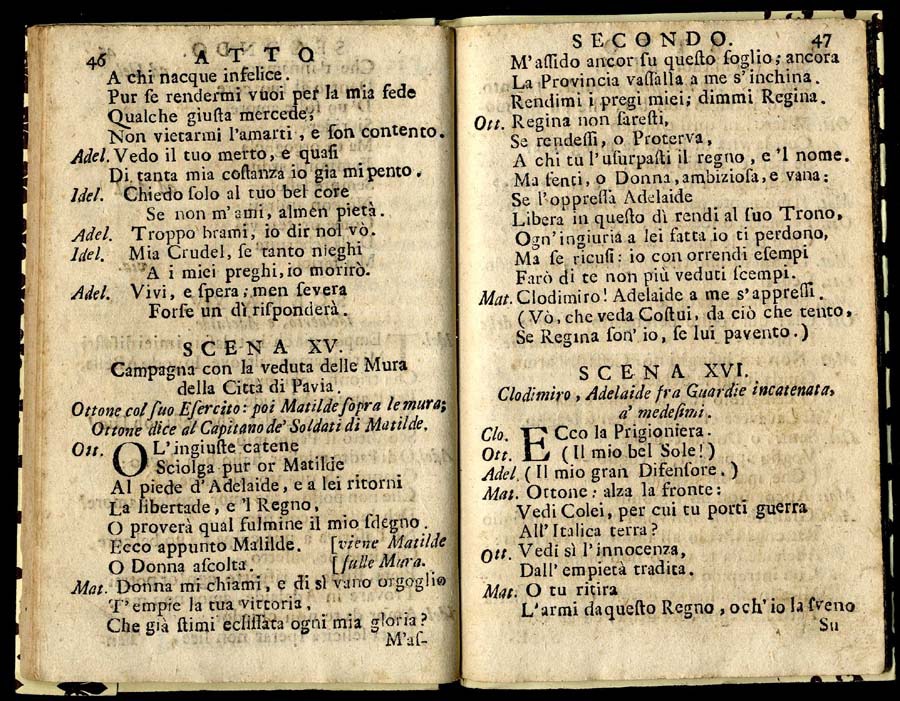 46 ATTO
A chi nacque infelice.
Pur ſe rendermi vuoi per la mia fede
Qualche giuſta mercede,
Non vietarmi l'amarti, e ſon contento.
Adel. Vedo il tuo merto, e quaſi
Di tanta mia coſtanza io gia mi pento.
Idel. Chiedo ſolo al tuo bel core
Se non m'ami, almen pietà.
Adel. Troppo brami, io dir nol vò.
Idel. Mia Crudel, ſe tanto nieghi
A i miei preghi, io morirò.
Adel. Vivi, e ſpera; men ſevera
Forſe un dì riſponderà.
SCENA XV.
Campagna con la veduta delle Mura
della Città di Pavia.
Ottone col ſuo Eſercito: poi Matilde ſopra le mura;
Ottone dice al Capitano de' Soldati di Matilde.
Ott. OL'ingiuſte catene
Sciolga pur or Matilde
Al piede d'Adelaide, e a lei ritorni
La libertade, e 'l Regno,
O proverà qual fulmine il mio ſdegno.
Ecco appunto Malilde. [viene Matilde
O Donna aſcolta. [ſulle Mura.
Mat. Donna mi chiami, e di sì vano orgoglio
T'empie la tua vittoria,
Che già ſtimi ecliſſata ogni mia gloria?
M'aſ-
SECONDO. 47
M'aſſido ancor ſu queſto ſoglio; ancora
La Provincia vaſſalla a me s'inchina.
Rendimi i pregi miei; dimmi Regina.
Ott. Regina non ſareſti,
Se rendeſſi, o Proterva,
A chi tu l'uſurpaſti il regno, e 'l nome.
Ma ſenti, o Donna, ambizioſa, e vana:
Se l'oppreſſa Adelaide
Libera in queſto dì rendi al ſuo Trono,
Ogn'ingiuria a lei fatta io ti perdono,
Ma ſe ricuſi: io con orrendi eſempi
Farò di te non più veduti ſcempi.
Mat. Clodimiro! Adelaide a me s'appreſſi.
(Vò, che veda Coſtui, da ciò che tento,
Se Regina ſon' io, ſe lui pavento.)
SCENA XVI.
Clodimiro, Adelaide fra Guardie incatenata,
a' medeſimi.
Clo. ECco la Prigioniera.
Ott. (Il mio bel Sole!)
Adel. (Il mio gran Difenſore.)
Mat. Ottone: alza la fronte:
Vedi Colei, per cui tu porti guerra
All' Italica terra?
Ott. Vedi sì l'innocenza,
Dall' empietà tradita.
Mat. O tu ritira
L'armi da queſto Regno, o ch'io la ſveno
Su